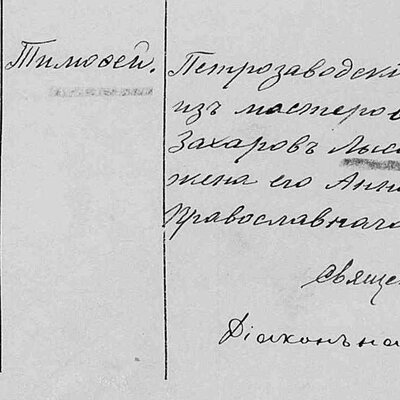 Тимоѳей.
Петрозаводскі
изъ мастеров
Захаровъ Лысо
жена его Анн
Православнаго
Свяще
Діаконъ на